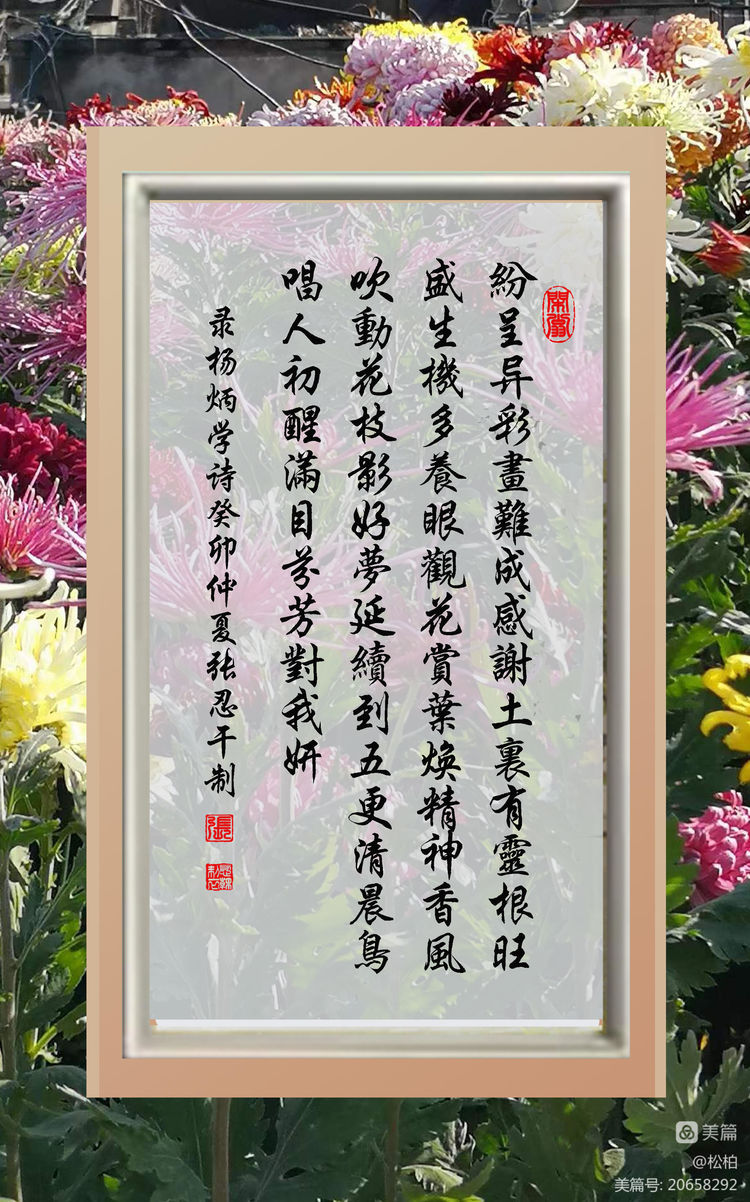 紛呈异彩畫難成感謝土裏有靈根旺
盛生機多養眼觀花賞葉焕精神香風
吹動花枝影好夢延續到五更清晨鳥
唱人初醒滿目芬芳對我妍
录杨炳学诗癸卯仲夏张忍干制
張
美篇
@松柏
美篇号: 20658292